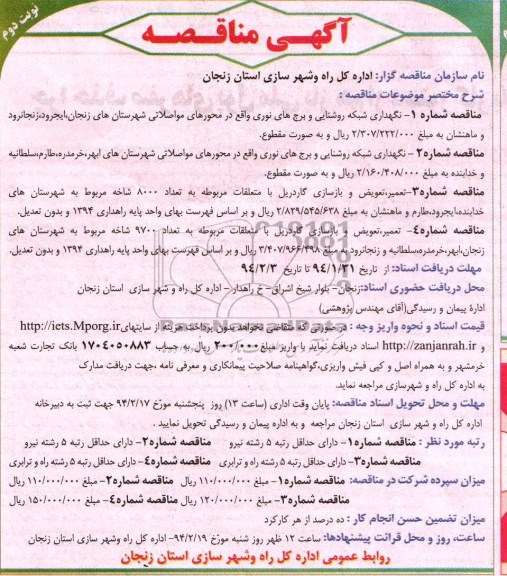 نوبت دوم
آگهی مناقصه
نام سازمان مناقصه گزار: اداره کل راه وشهر سازی استان زنجان
شرح مختصر موضوعات مناقصه :
مناقصه شماره ۱- نگهداری شبکه روشنایی و برج های نوری واقع در محورهای مواصلاتی شهرستان های زنجان،ایجرود،زنجانرود
و ماهنشان به مبلغ ۲/۳۰۷/۲۲۲/۰۰۰ ریال و به صورت مقطوع.
مناقصه شماره۲ - نگهداری شبکه روشنایی و برج های نوری واقع در محورهای مواصلاتی شهرستان های ابهر،خرمدره،طارم،سلطانیه
و خدابنده به مبلغ ۲/۱۶۰/۴۰۸/۰۰۰ ریال و به صورت مقطوع.
مناقصه شماره۳-تعمیر،تعویض و بازسازی گاردریل با متعلقات مربوطه به تعداد ۸۰۰۰ شاخه مربوط به شهرستان های
خدابنده،ایجرود،طارم و ماهنشان به مبلغ ۲/۸۲۹/۵۴۵/۶۳۸ ریال و بر اساس فهرست بهای واحد پایه راهداری ۱۳۹۴ و بدون تعدیل.
مناقصه شماره۴- تعمیر،تعویض و بازسازی گاردریل با متعلقات مربوطه به تعداد ۹۷۰۰ شاخه مربوط به شهرستان های
زنجان،ابهر،خرمدره،سلطانیه و زنجانرود به مبلغ ۳/۴۰۷/۹۶۶/۴۹۸ ریال و بر اساس فهرست بهای واحد پایه راهداری ۱۳۹۴ و بدون تعدیل.
مهلت دریافت اسناد: از تاریخ ۹۴/۱/۳۱ تا تاریخ ۹۴/۲/۳
محل دریافت حضوری اسناد:زنجان- بلوار شیخ اشراق- خ راهدار - اداره کل راه و شهر سازی استان زنجان
ادارهٔ پیمان و رسیدگی(آقای مهندس پژوهشی)
قیمت اسناد و نحوه واریز وجه : در صورتی که متقاضی نخواهد بدون پرداخت هزینه از سایتهای http://iets.Mporg.ir
و http://zanjanrah.ir اسناد دریافت نماید با واریز مبلغ ۲۰۰/۰۰۰ ریال به حساب ۱۷۰۴۰۵۰۸۸۳ بانک تجارت شعبه
خرمشهر و به همراه اصل و کپی فیش واریزی،گواهینامه صلاحیت پیمانکاری و معرفی نامه ،جهت دریافت مدارک
به اداره کل راه و شهرسازی مراجعه نماید.
مهلت و محل تحویل اسناد مناقصه: پایان وقت اداری (ساعت ۱۳) روز پنجشنبه مورّخ ۹۴/۲/۱۷ جهت ثبت به دبیرخانه
اداره کل راه و شهر سازی استان زنجان مراجعه و به اداره پیمان و رسیدگی تحویل نمایید .
رتبه مورد نظر : مناقصه شماره۱- دارای حداقل رتبه ۵ رشته نیرو مناقصه شماره۲- دارای حداقل رتبه ۵ رشته نیرو
مناقصه شماره۳- دارای حداقل رتبه ۵ رشته راه و ترابری مناقصه شماره۴- دارای حداقل رتبه ۵ رشته راه و ترابری
میزان سپرده شرکت در مناقصه: مناقصه شماره۱- مبلغ ۱۱۰/۰۰۰/۰۰۰ ریال مناقصه شماره۲- مبلغ ۱۱۰/۰۰۰/۰۰۰ ریال
مناقصه شماره۳- مبلغ ۱۲۰/۰۰۰/۰۰۰ ریال مناقصه شماره۴- مبلغ ۱۵۰/۰۰۰/۰۰۰ ریال
میزان تضمین حسن انجام کار : ده درصد از هر کارکرد
ساعت، روز و محل قرائت پیشنهادها: ساعت ۱۲ ظهر روز شنبه مورّخ ۹۴/۲/۱۹- اداره کل راه وشهر سازی استان زنجان
روابط عمومی اداره کل راه وشهر سازی استان زنجان